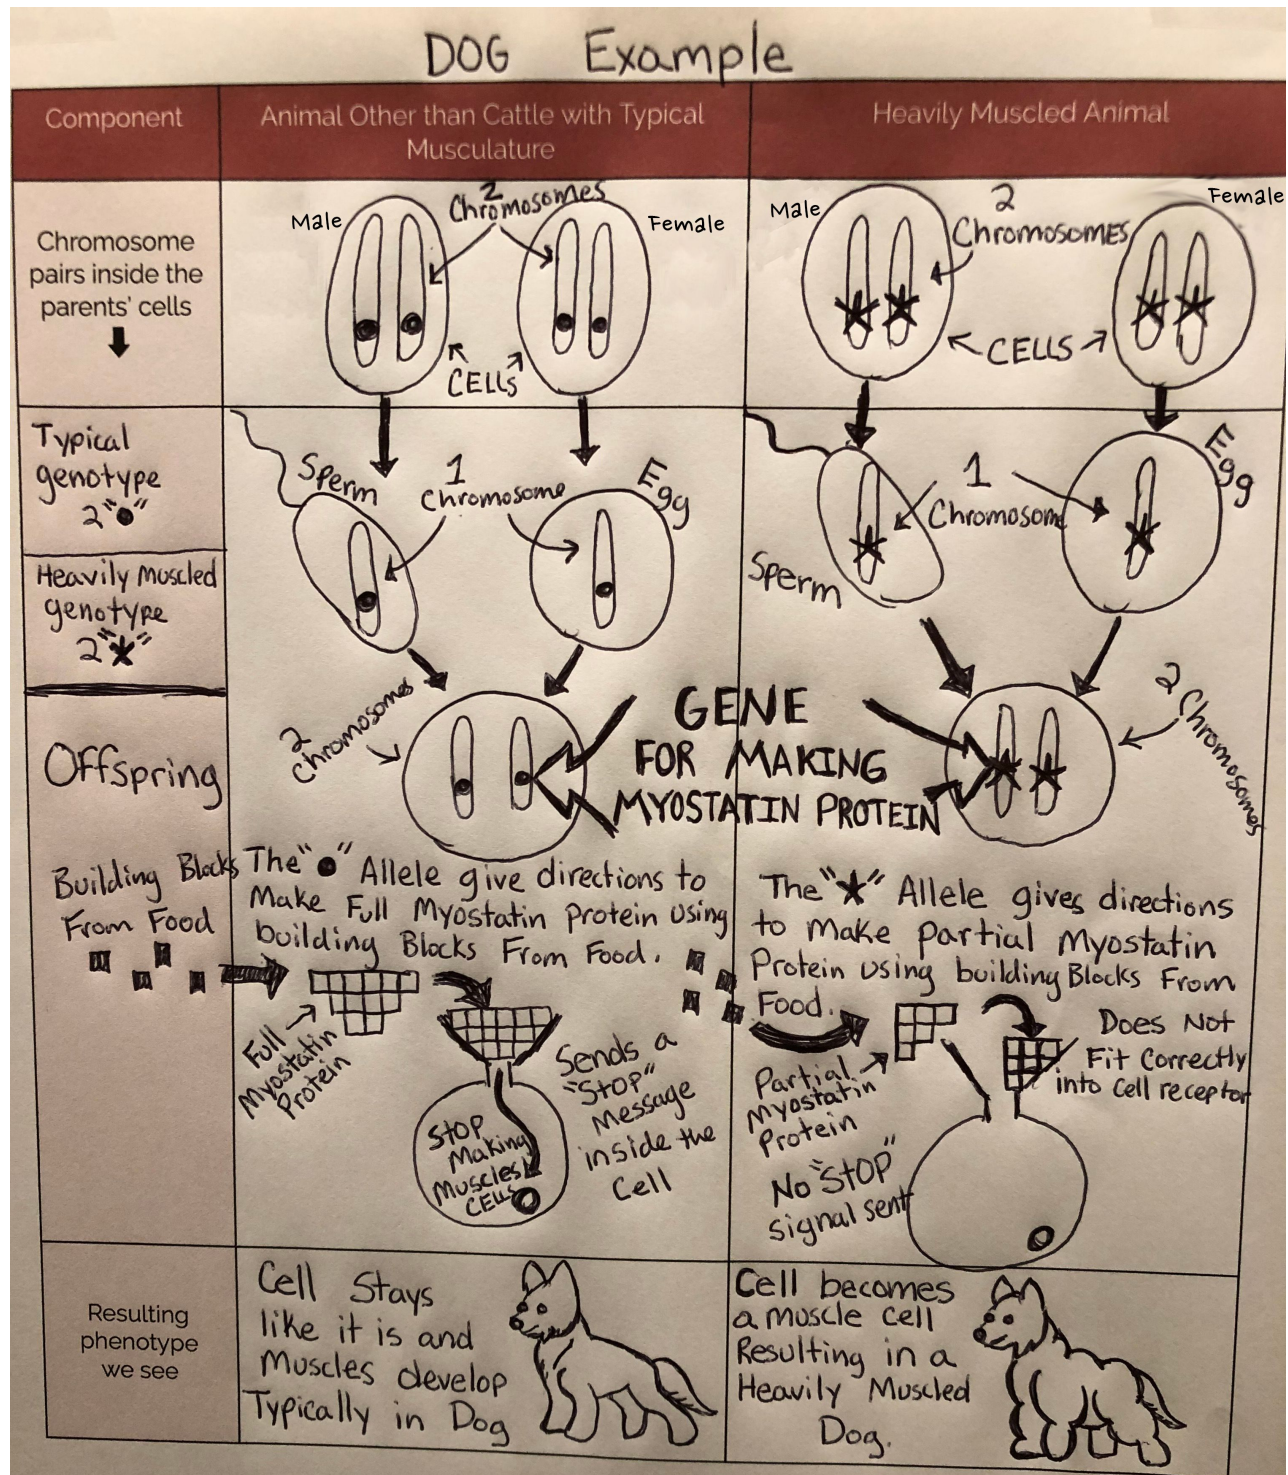 DOG Example
Component
Animal Other than Cattle with Typical
Musculature
Heavily Muscled Animal
Chromosome
pairs inside the
parents' cells
Male
2
Chromosomes
Female
CELLS
Male
2
Chromosomes
Female
CELLS
Typical
genotype
2 "●"
Heavily Muscled
genotype
2 "★"
Sperm
1
Chromosome
Egg
Sperm
1
Chromosome
Egg
Offspring
2
Chromosomes
GENE
FOR MAKING
MYOSTATIN PROTEIN
2 Chromosomes
Building Blocks
From Food
The "●" Allele give directions to
Make Full Myostatin Protein using
building Blocks From Food.
Full
Myostatin
Protein
Sends a
"STOP"
Message
inside the
Cell
STOP
Making
Muscles
CELLS
The "★" Allele gives directions
to Make partial Myostatin
Protein using building Blocks From
Food.
Partial
Myostatin
Protein
Does Not
Fit Correctly
into Cell receptor
No "STOP"
signal sent
Resulting
phenotype
we see
Cell Stays
like it is and
Muscles develop
Typically in Dog
Cell becomes
a muscle cell
Resulting in a
Heavily Muscled
Dog.